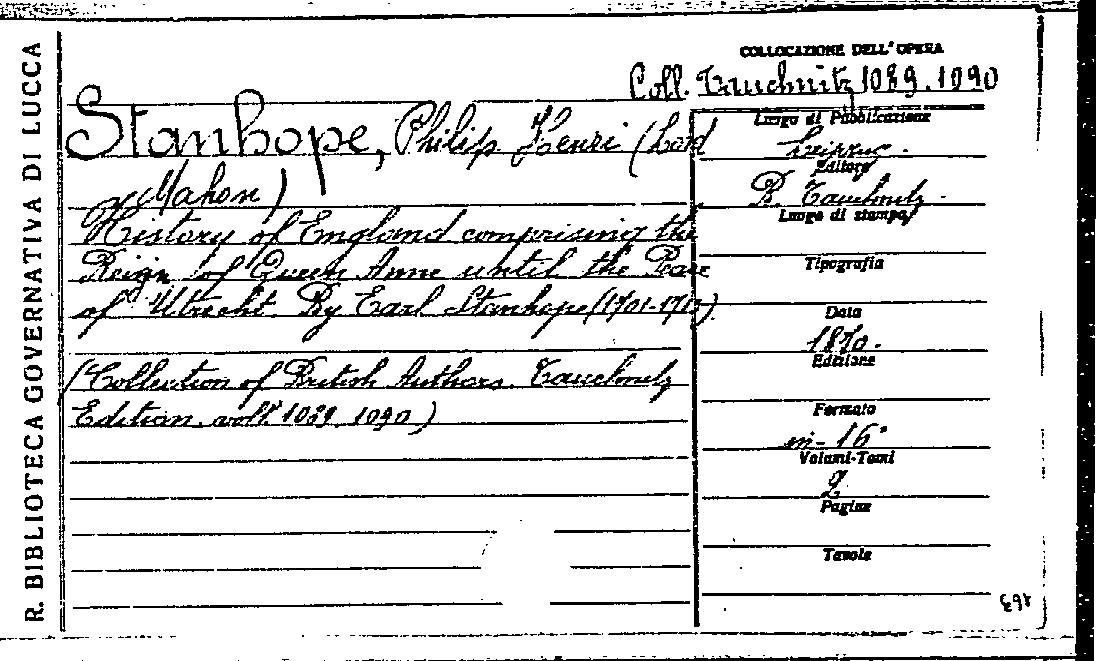 R. BIBLIOTECA GOVERNATIVA DI LUCCA
COLLOCAZIONE DELL'OPERA
Coll. Tauchnitz 1089.1090
Stanhope, Philip Henri (Lord
Mahon)
History of England comprising the
Reign of Queen Anne until the Peace
of Utrecht. By Earl Stanhope (1701-1713)
(Collection of British Authors. Tauchnitz
Edition. voll. 1089. 1090)
Luogo di Pubblicazione
Leipzig.
Editore
B. Tauchnitz.
Luogo di stampa
Tipografia
Data
1870.
Edizione
Formato
in-16°
Volumi-Tomi
2
Pagine
Tavole